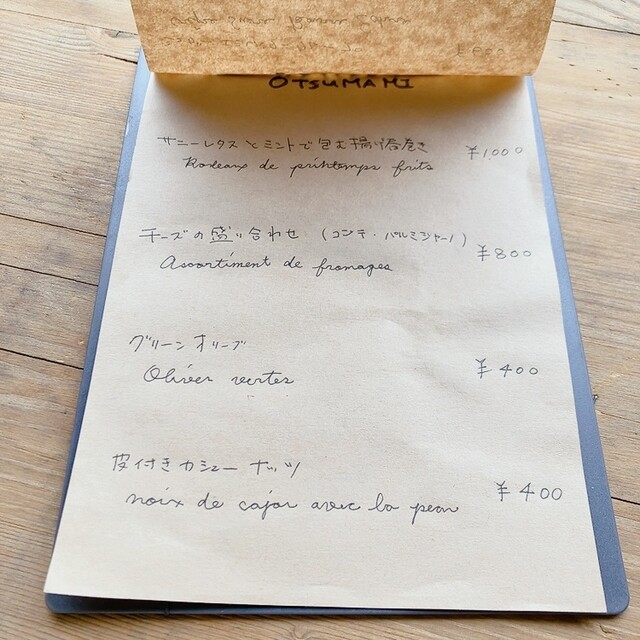 OTSUMAMI
サニーレタスとミントで包む揚げ春巻き ¥1000
Rouleaux de printemps frits
チーズの盛り合わせ (コンテ・パルミジャーノ) ¥800
Assortiment de fromages
グリーンオリーブ ¥400
Olives vertes
皮付きカシューナッツ ¥400
noix de cajou avec la peau